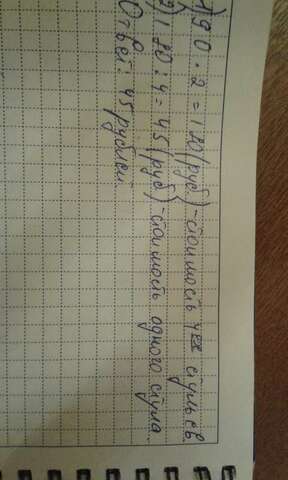 1) 90 · 2 = 180 (руб) - стоимость 4ех стульев.
2) 180 : 4 = 45 (руб) - стоимость одного стула.
Ответ: 45 рублей.